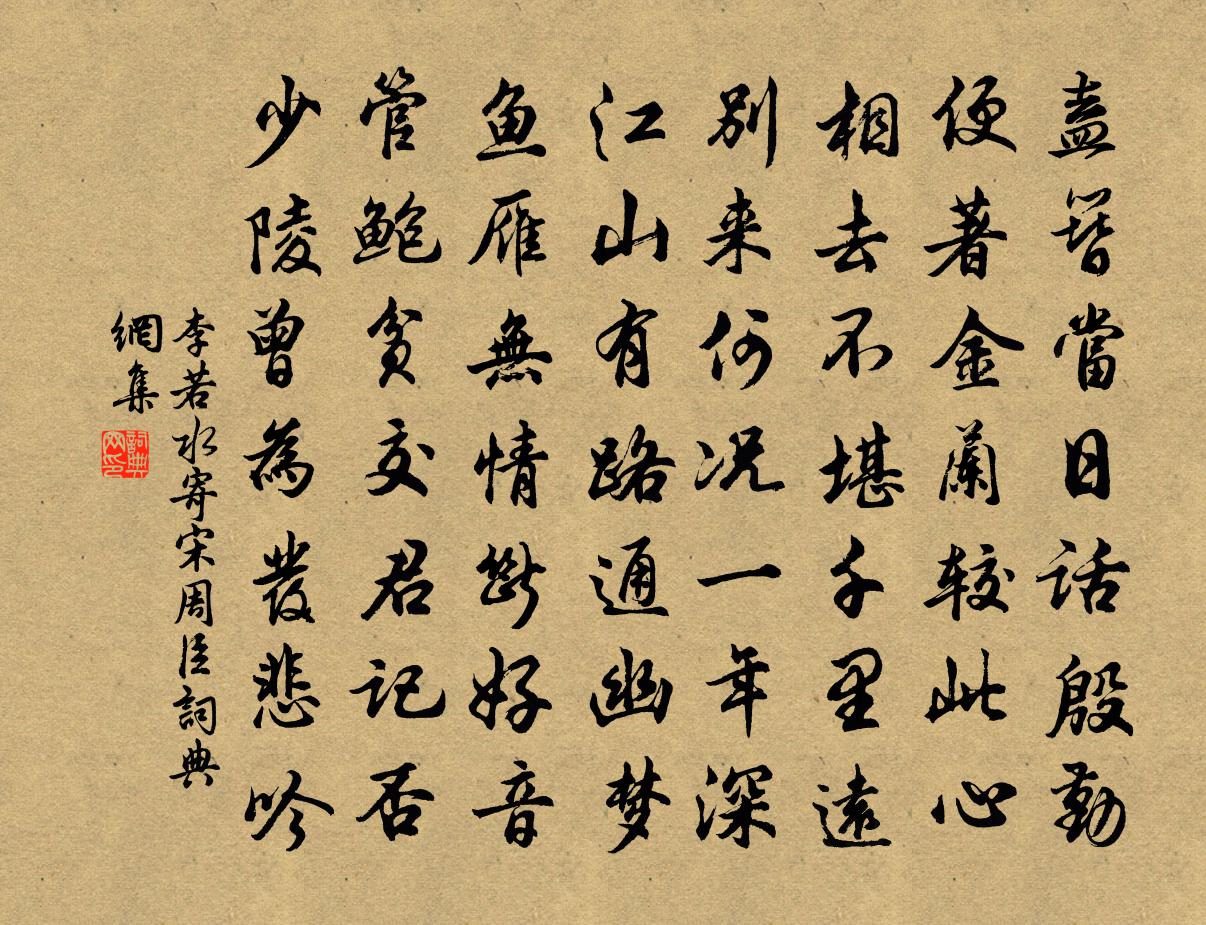 盍簪當日话殷勤
便著金蘭较此心
相去不堪千里遠
别来何况一年深
江山有路通幽梦
鱼雁無情斷好音
管鲍贫交君记否
少陵曾為發悲吟
李若水寄宋周臣詞典
網集
詞典
网印